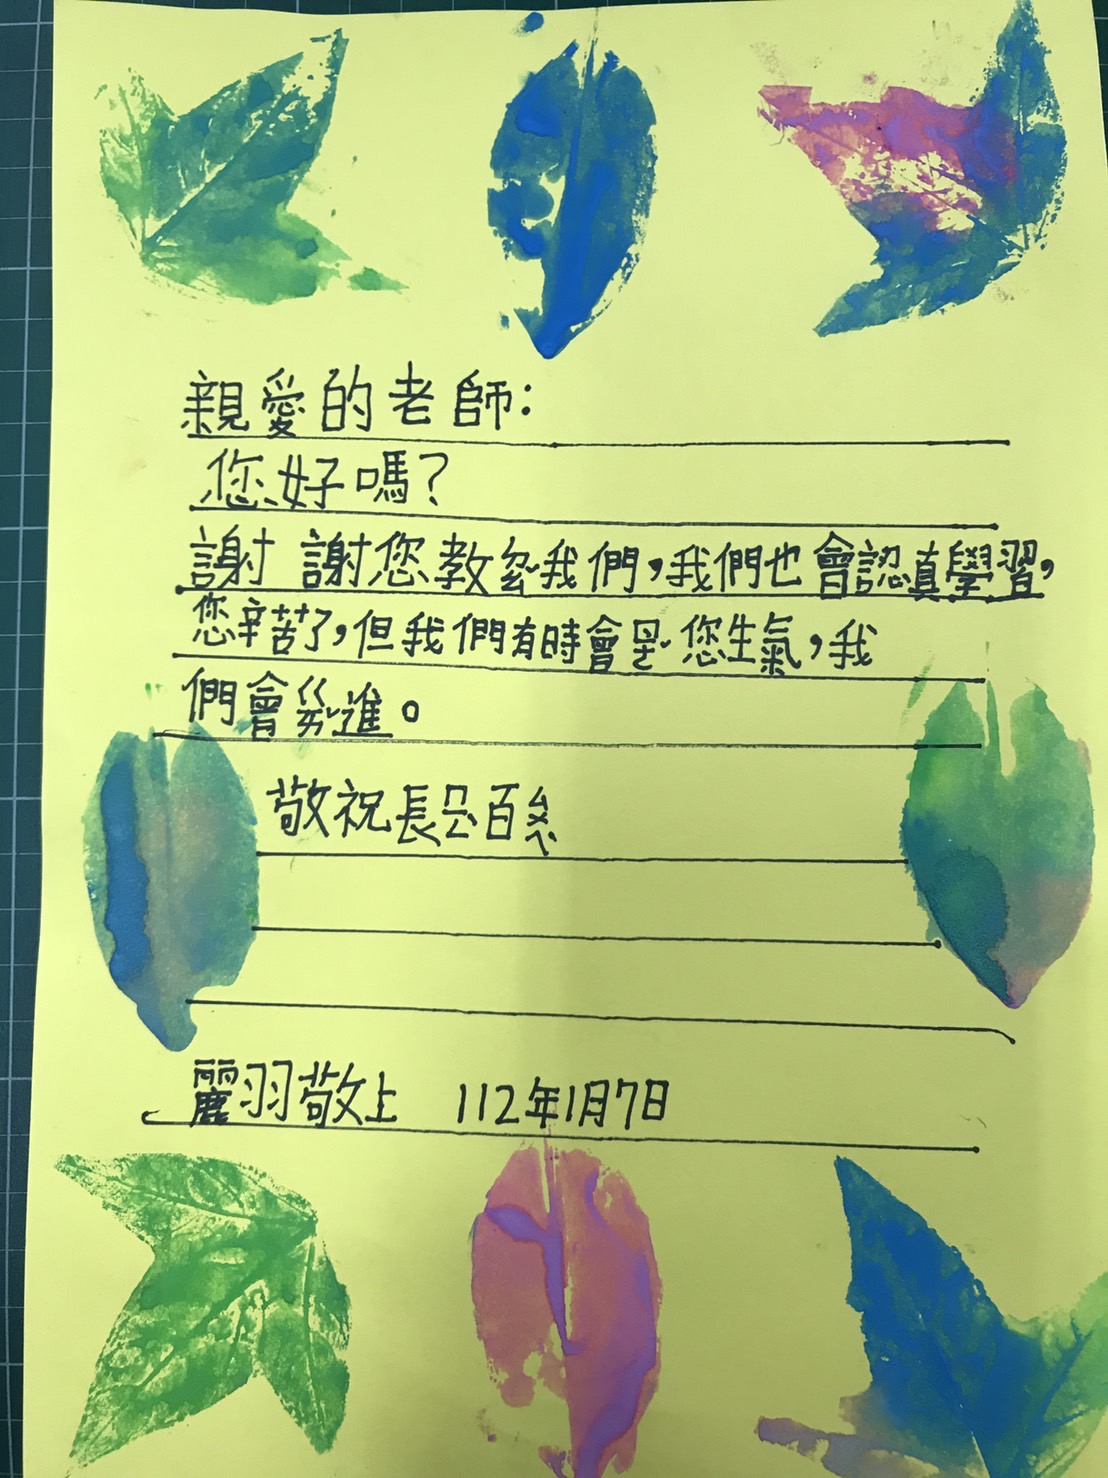 親愛的老師：
您好嗎？
謝謝您教我們，我們也會認真學習，
您辛苦了，但我們有時會您生氣，我
們會進。
敬祝長百
麗羽敬上 112年1月7日